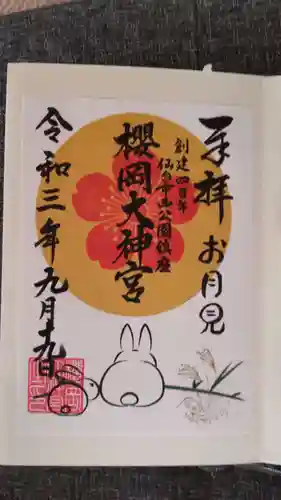 奉拝 お月見
創建四百年
仙台西公園鎮座
櫻岡大神宮
令和三年九月十九日